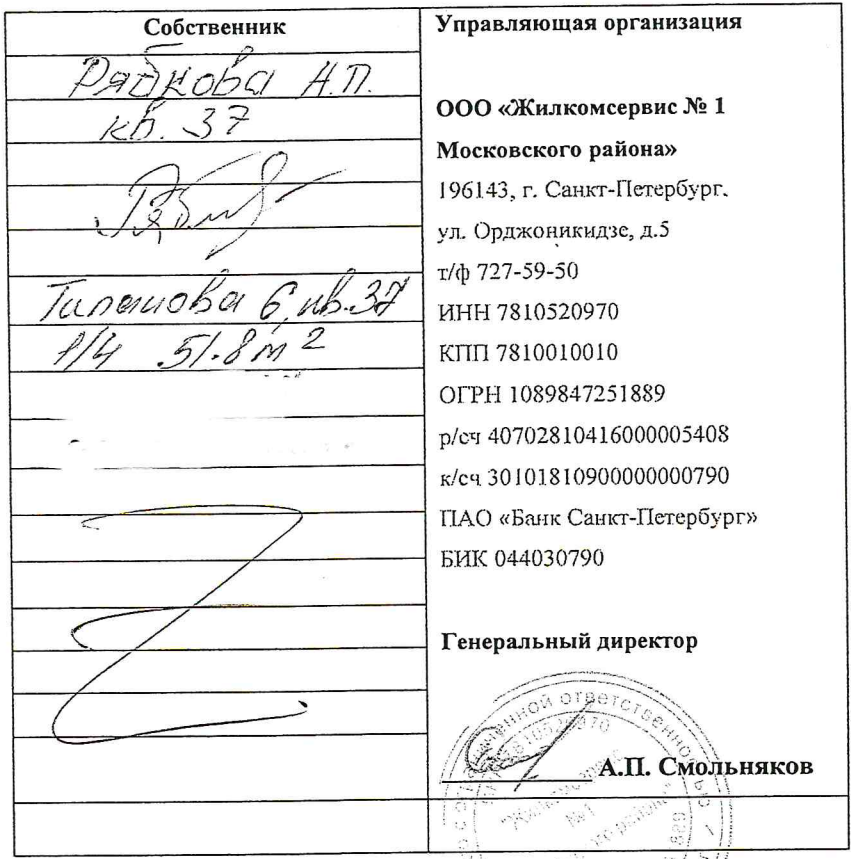 Собственник
Рябкова Н.П.
кв. 37
Типанова 6, кв. 37
1/4 51.8 м²
Управляющая организация
ООО «Жилкомсервис № 1
Московского района»
196143, г. Санкт-Петербург.
ул. Орджоникидзе, д.5
т/ф 727-59-50
ИНН 7810520970
КПП 7810010010
ОГРН 1089847251889
р/сч 40702810416000005408
к/сч 30101810900000000790
ПАО «Банк Санкт-Петербург»
БИК 044030790
Генеральный директор
А.П. Смольняков